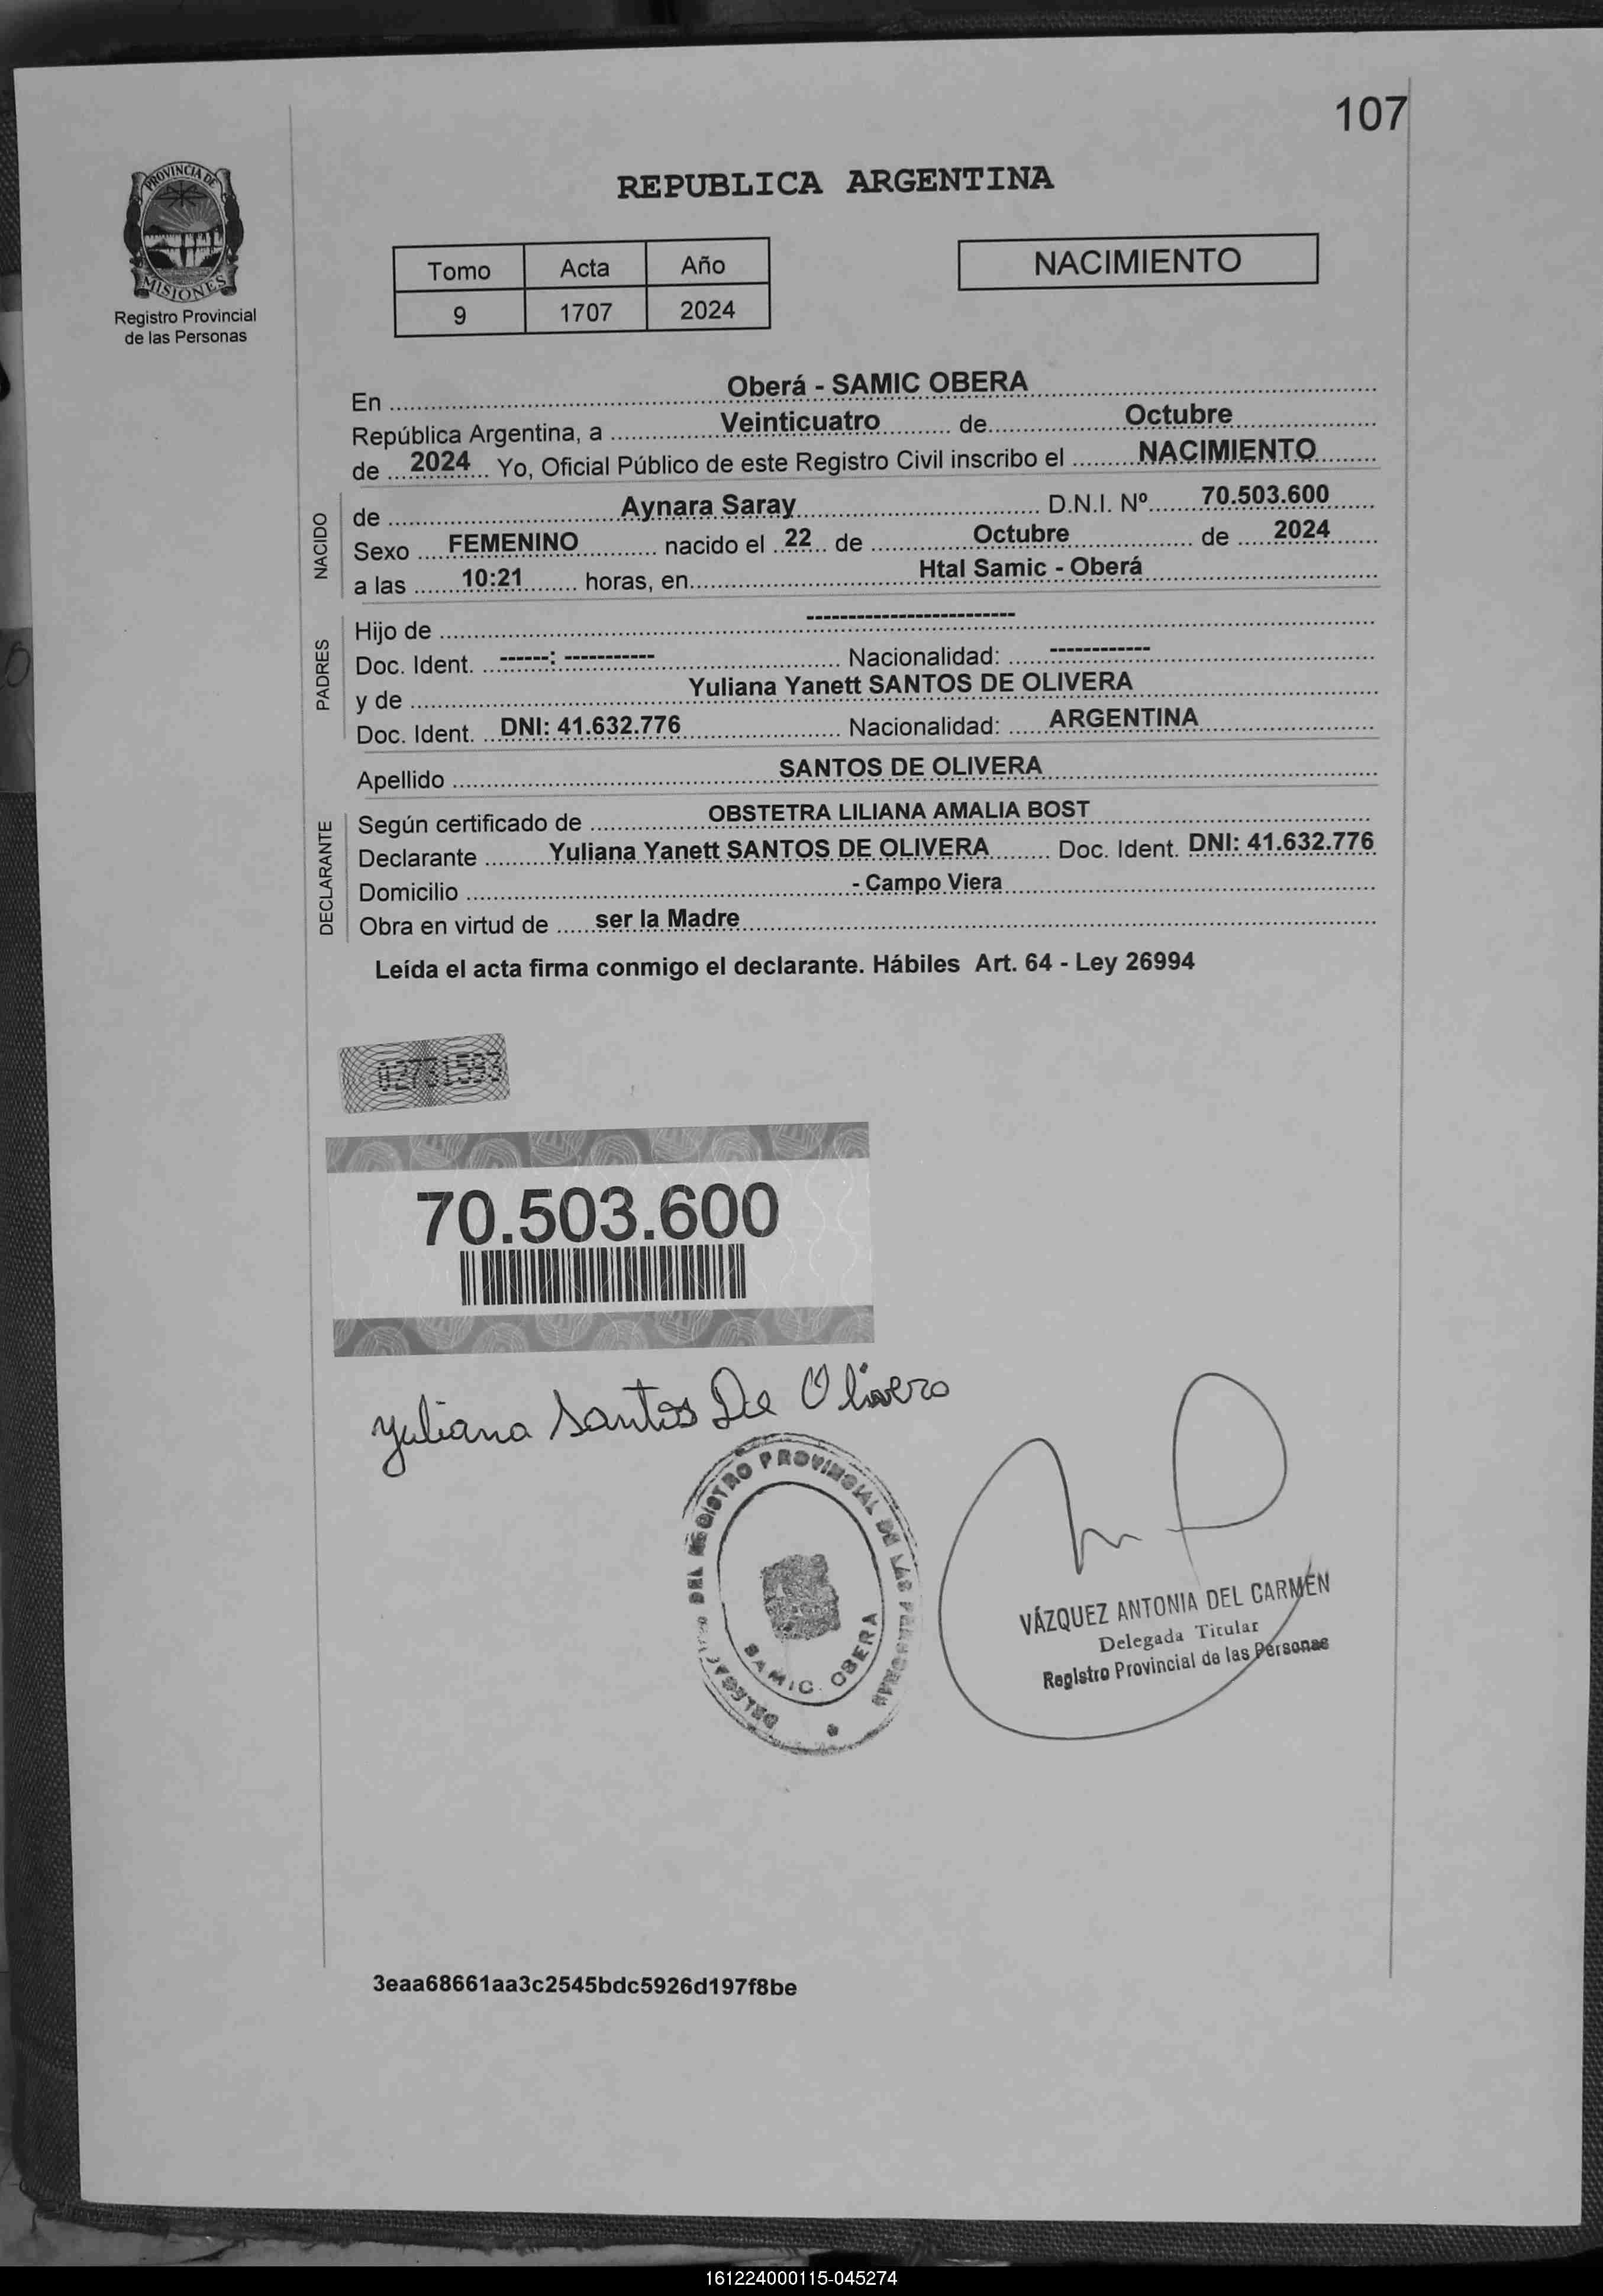 107
PROVINCIA DE
MISIONES
Registro Provincial
de las Personas
REPUBLICA ARGENTINA
Tomo Acta Año
9 1707 2024
NACIMIENTO
En Oberá - SAMIC OBERA
República Argentina, a Veinticuatro de Octubre
de 2024 Yo, Oficial Público de este Registro Civil inscribo el NACIMIENTO
NACIDO
de Aynara Saray D.N.I. Nº 70.503.600
Sexo FEMENINO nacido el 22 de Octubre de 2024
a las 10:21 horas, en Htal Samic - Oberá
PADRES
Hijo de -------------------------
Doc. Ident. ------: ----------- Nacionalidad: ------------
y de Yuliana Yanett SANTOS DE OLIVERA
Doc. Ident. DNI: 41.632.776 Nacionalidad: ARGENTINA
Apellido SANTOS DE OLIVERA
DECLARANTE
Según certificado de OBSTETRA LILIANA AMALIA BOST
Declarante Yuliana Yanett SANTOS DE OLIVERA Doc. Ident. DNI: 41.632.776
Domicilio - Campo Viera
Obra en virtud de ser la Madre
Leída el acta firma conmigo el declarante. Hábiles Art. 64 - Ley 26994
70.503.600
Yuliana Santos De Olivera
DEL REGISTRO PROVINCIAL DE LAS PERSONAS
SAMIC OBERA
VÁZQUEZ ANTONIA DEL CARMEN
Delegada Titular
Registro Provincial de las Personas
3eaa68661aa3c2545bdc5926d197f8be
161224000115-045274